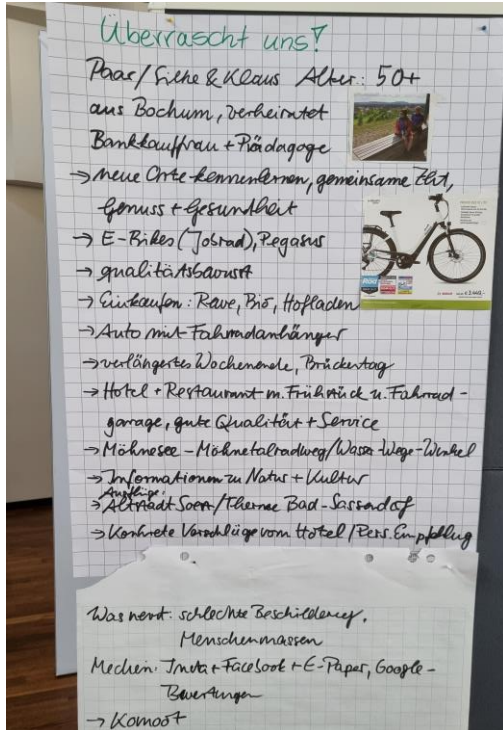 Überrascht uns!
Paar/Silke & Klaus Alter: 50+
aus Bochum, verheiratet
Bankkauffrau + Pädagoge
→ neue Orte kennenlernen, gemeinsame Zeit,
Genuss + Gesundheit
→ E-Bikes (Jobrad), Pegasus
→ qualitätsbewusst
→ Einkaufen: Rewe, Bio, Hofladen
→ Auto mit Fahrradanhänger
→ verlängertes Wochenende, Brückentag
→ Hotel + Restaurant m. Frühstück u. Fahrrad-
garage, gute Qualität + Service
→ Möhnesee - Möhnetalradweg/Wasser-Wege-Winkel
→ Informationen zu Natur + Kultur
Ausflüge:
→ Altstadt Soest/Therme Bad-Sassendorf
→ Konkrete Vorschläge vom Hotel/Pers. Empfehlug
Was nervt: schlechte Beschilderung,
Menschenmassen
Medien: Insta + Facebook + E-Paper, Google-
Bewertungen
→ Komoot